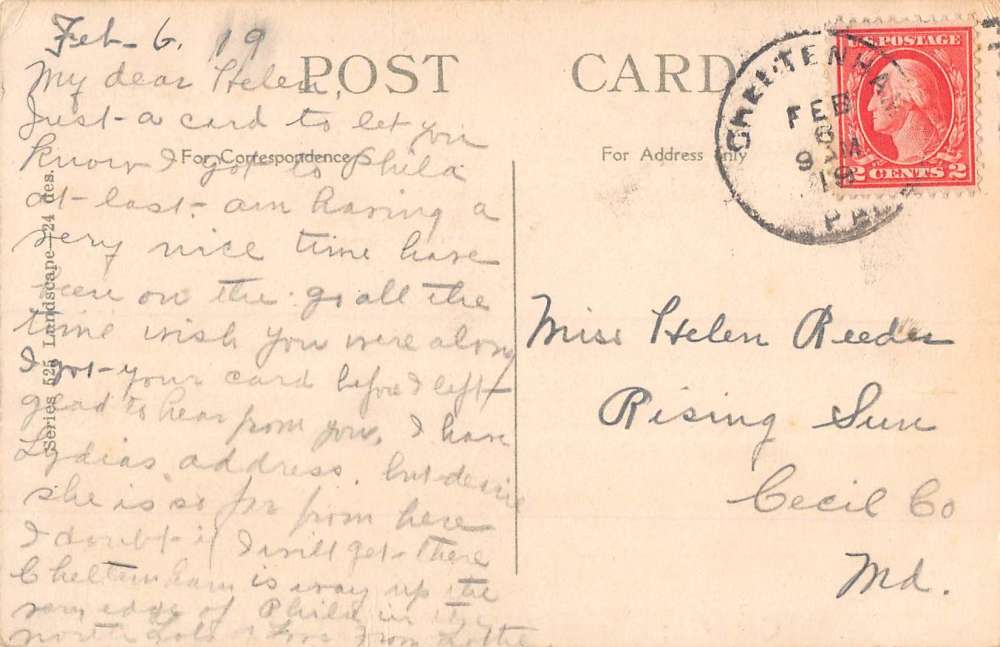 Feb- 6. 19
POST CARD
My dear Helen,
Just a card to let you
know I got to Phila
For Correspondence
at last. am having a
very nice time have
been on the go all the
time wish you were along
I got your card before I left
glad to hear from you, I have
Lydias address. but
she is so far from here
I doubt if I will get there
Cheltenham is way up the
very edge of Phila in the
north Lots of love From Lottie
Series 525 Landscape—24 des.
For Address Only
CHELTENHAM
FEB
6
9 M
19
PA.
U.S. POSTAGE
2 CENTS 2
Miss Helen Reeder
Rising Sun
Cecil Co
Md.